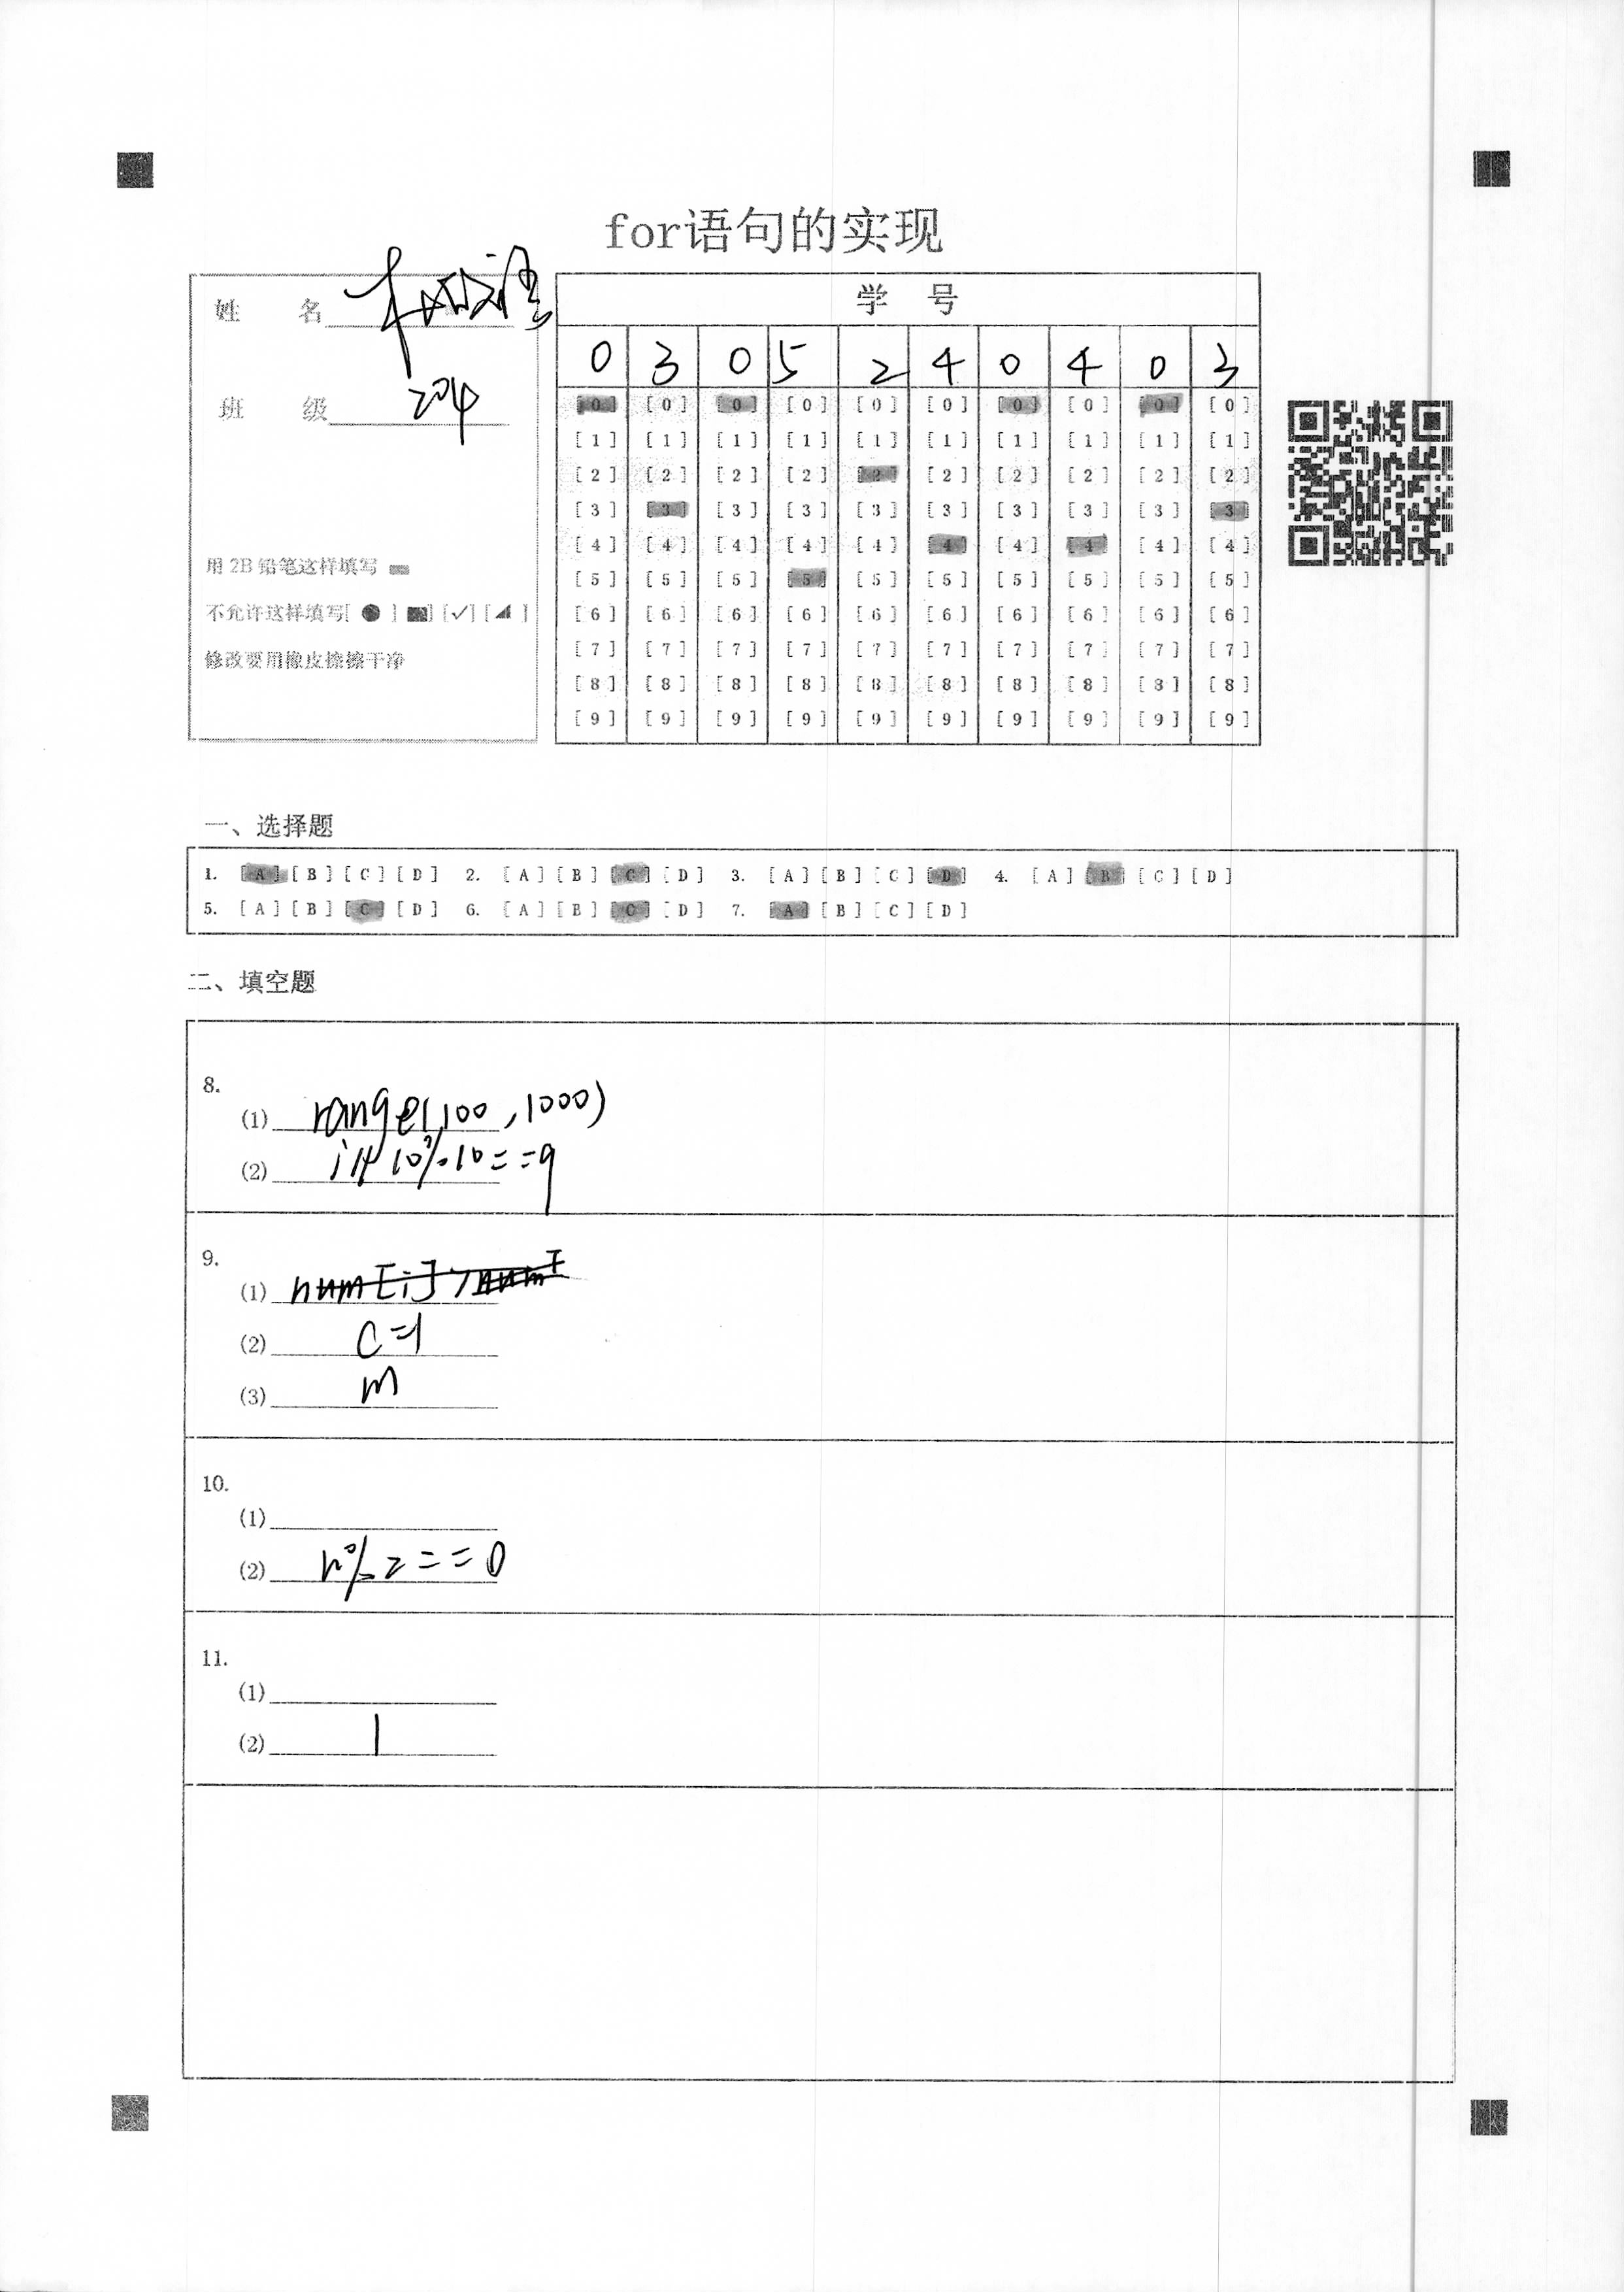 for语句的实现
姓 名
班 级 204
用2B铅笔这样填写
不允许这样填写[ ● ] [■] [✓] [◢ ]
修改要用橡皮擦擦干净
学 号
0 3 0 5 2 4 0 4 0 3
[0] [0] [0] [0] [0] [0] [0] [0] [0] [0]
[1] [1] [1] [1] [1] [1] [1] [1] [1] [1]
[2] [2] [2] [2] [2] [2] [2] [2] [2] [2]
[3] [3] [3] [3] [3] [3] [3] [3] [3] [3]
[4] [4] [4] [4] [4] [4] [4] [4] [4] [4]
[5] [5] [5] [5] [5] [5] [5] [5] [5] [5]
[6] [6] [6] [6] [6] [6] [6] [6] [6] [6]
[7] [7] [7] [7] [7] [7] [7] [7] [7] [7]
[8] [8] [8] [8] [8] [8] [8] [8] [8] [8]
[9] [9] [9] [9] [9] [9] [9] [9] [9] [9]
一、选择题
1. [A] [B] [C] [D] 2. [A] [B] [C] [D] 3. [A] [B] [C] [D] 4. [A] [B] [C] [D]
5. [A] [B] [C] [D] 6. [A] [B] [C] [D] 7. [A] [B] [C] [D]
二、填空题
8.
(1) range(100,1000)
(2) i//10%10==9
9.
(1) num[i]>num[
(2) c=1
(3) m
10.
(1)
(2) n%2==0
11.
(1)
(2) 1